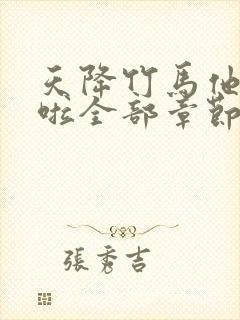 天降竹马他
啦全部章節
張秀吉